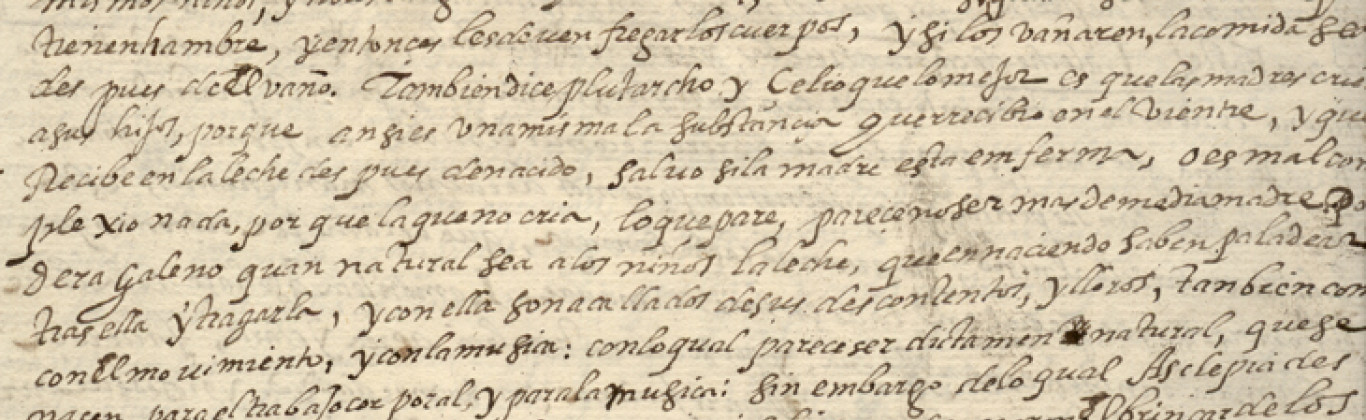 mismos niños, y
tienenhambre, yentonces lesdeuen fregarloscuerpos, ysi los vañaren, lacomida sea
des pues deel vaño. Tambiendice plutarcho y Celio quelomejor es quelasmadres crien
asus hijos, porque ansies vnamismala substançia querrecibio enel vientre, yque
Recibeenlaleche des pues denacido, saluo sila madre esta emferma, o es mal con
plexionada, por que laqueno cria, loquepare, parecenoser masdemediamadre. Po
dera Galeno quan natural sea alos niños laleche, queennaciendo saben paladear
tras ella ytragarla, yconella sonacallados desus descontentos, ylloros, tambien con
conel mouimiento, yconlamusica: conloqual pareceser dictamen natural, quese
nacen paraeltrabajocorporal, y paralamusica: sin embargo deloqual Asclepiades
brincar delos